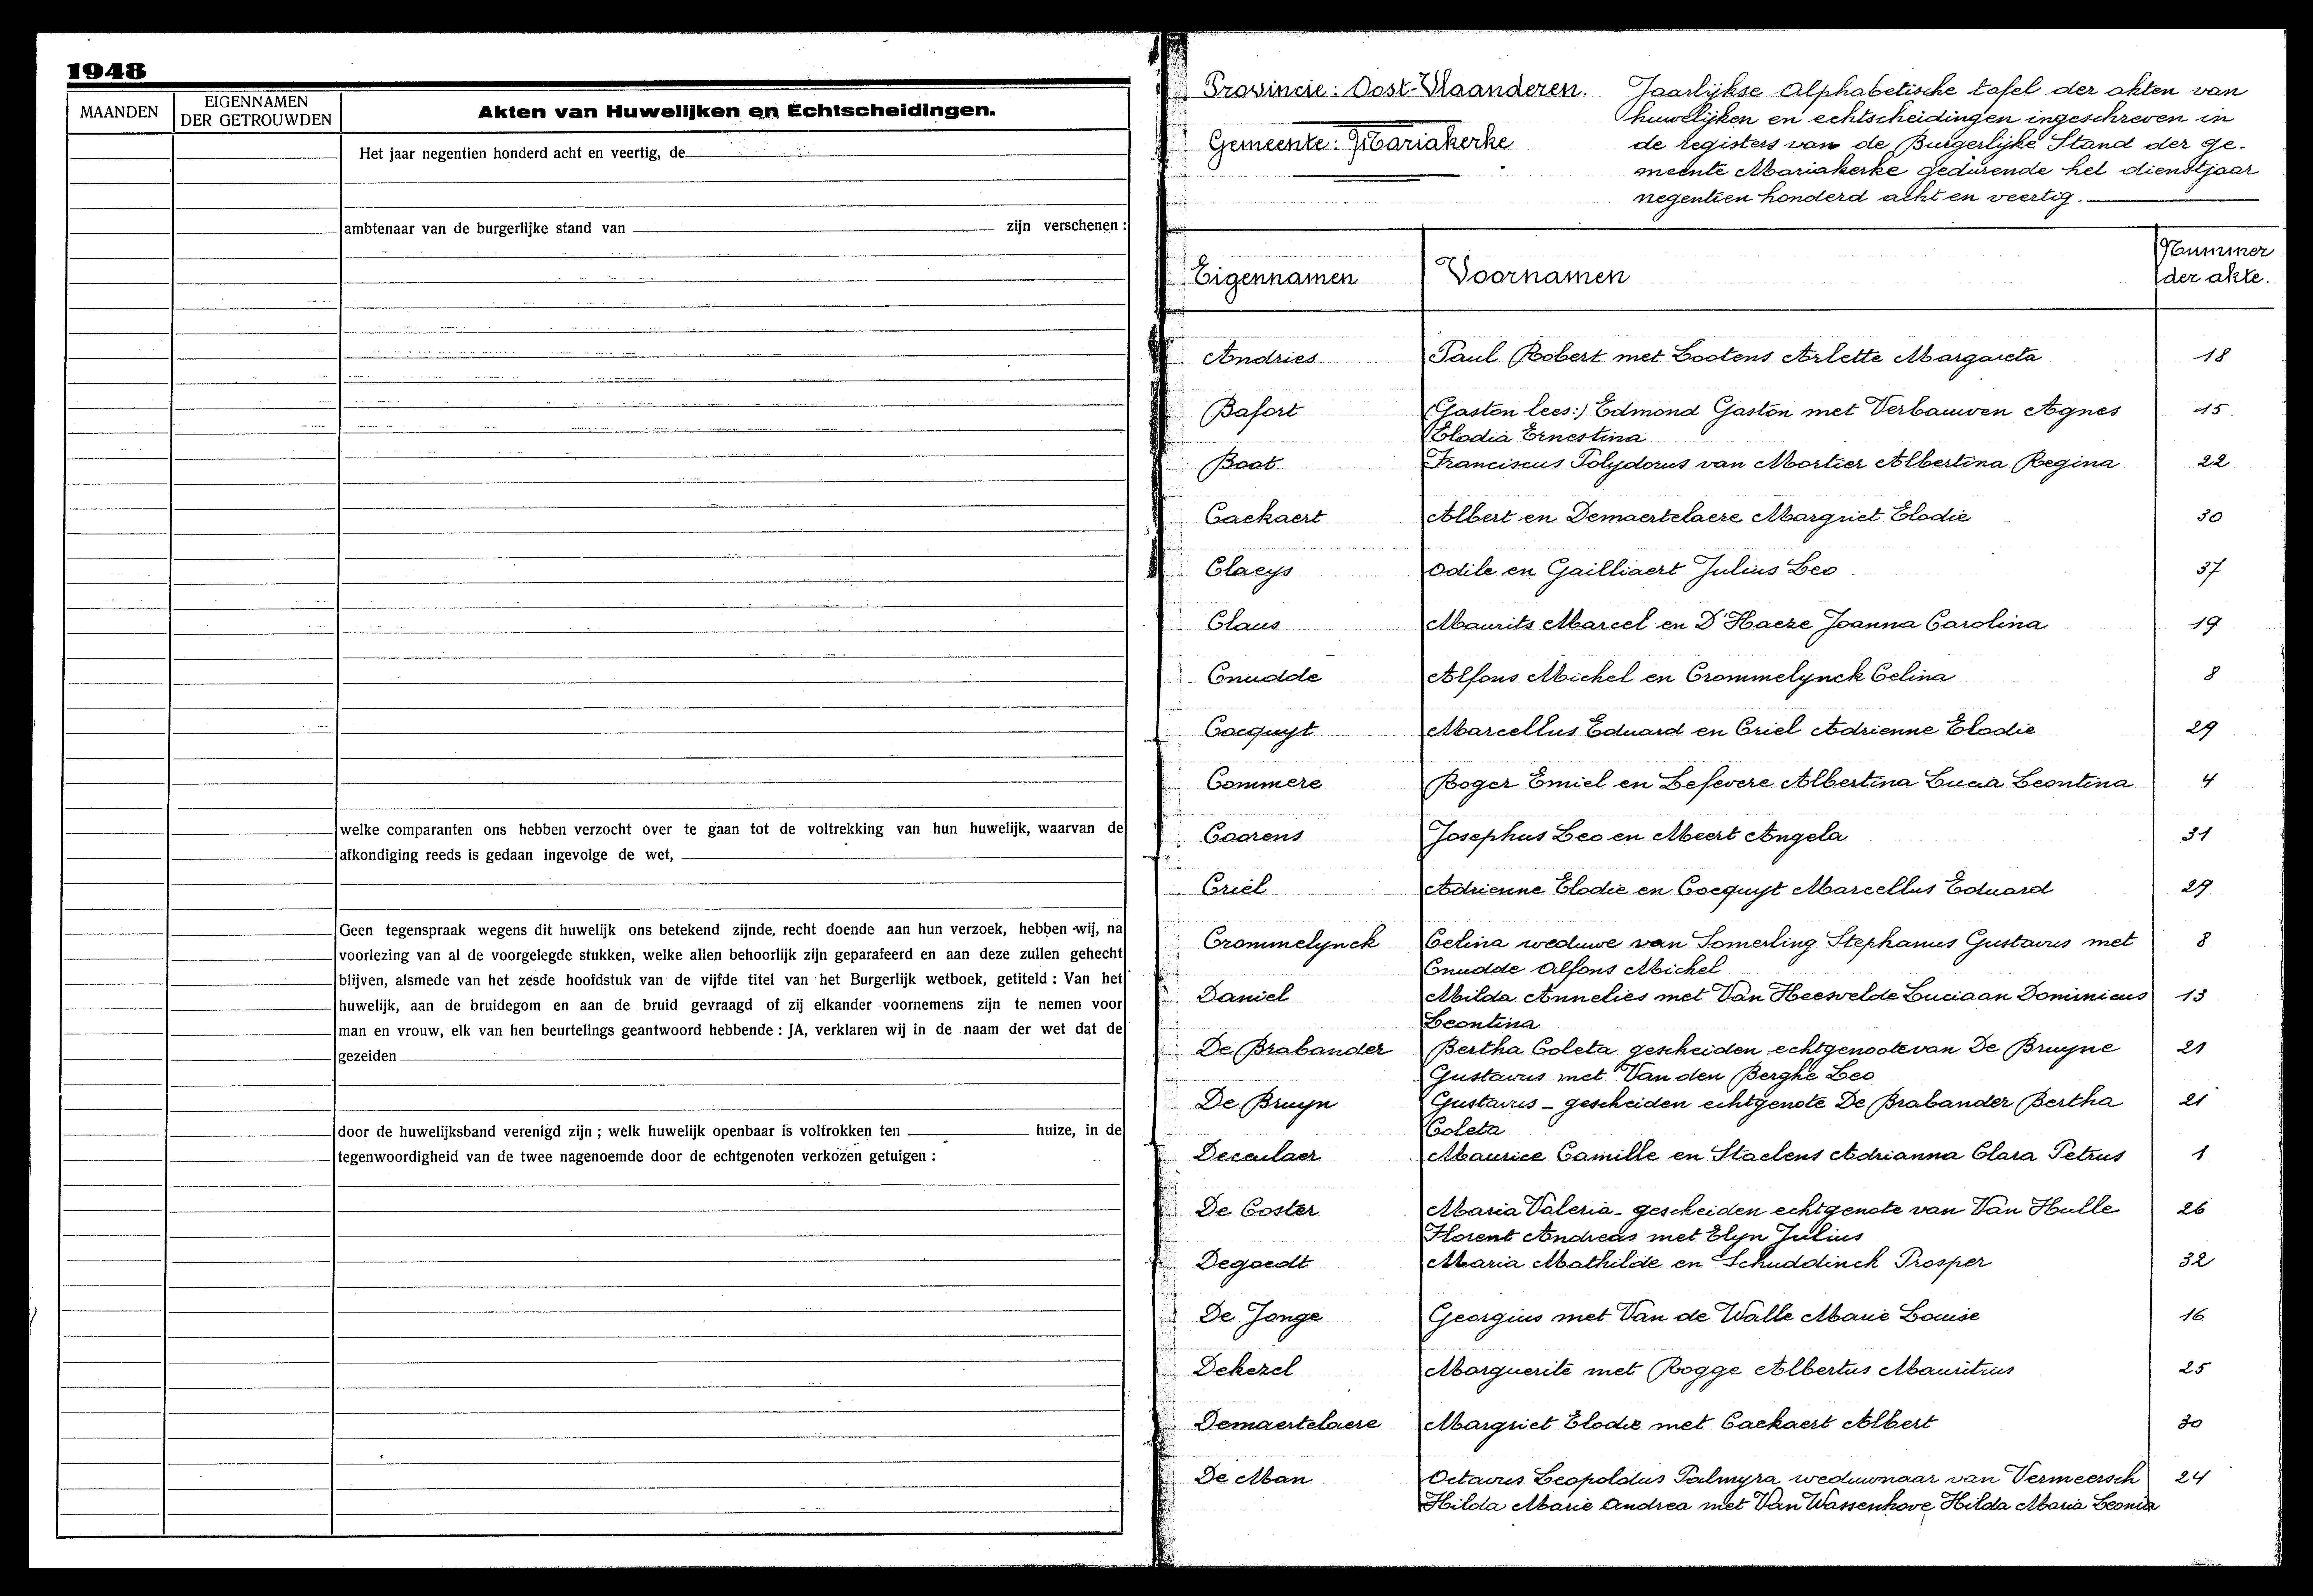 1948
MAANDEN
EIGENNAMEN
DER GETROUWDEN
Akten van Huwelijken en Echtscheidingen.
Het jaar negentien honderd acht en veertig, de
ambtenaar van de burgerlijke stand van zijn verschenen :
welke comparanten ons hebben verzocht over te gaan tot de voltrekking van hun huwelijk, waarvan de
afkondiging reeds is gedaan ingevolge de wet,
Geen tegenspraak wegens dit huwelijk ons betekend zijnde, recht doende aan hun verzoek, hebben wij, na
voorlezing van al de voorgelegde stukken, welke allen behoorlijk zijn geparafeerd en aan deze zullen gehecht
blijven, alsmede van het zesde hoofdstuk van de vijfde titel van het Burgerlijk wetboek, getiteld : Van het
huwelijk, aan de bruidegom en aan de bruid gevraagd of zij elkander voornemens zijn te nemen voor
man en vrouw, elk van hen beurtelings geantwoord hebbende : JA, verklaren wij in de naam der wet dat de
gezeiden
door de huwelijksband verenigd zijn ; welk huwelijk openbaar is voltrokken ten huize, in de
tegenwoordigheid van de twee nagenoemde door de echtgenoten verkozen getuigen :
Provincie : Oost-Vlaanderen.
Gemeente : Mariakerke
Jaarlijkse Alphabetische tafel der akten van
huwelijken en echtscheidingen ingeschreven in
de registers van de Burgerlijke Stand der ge-
meente Mariakerke gedurende het dienstjaar
negentien honderd acht en veertig.
Eigennamen Voornamen Nummer
der akte.
Andries Paul Robert met Lootens Arlette Margareta 18
Bafort (Gaston lees:) Edmond Gaston met Verbauwen Agnes 15
Elodia Ernestina
Boot Franciscus Polydorus van Mortier Albertina Regina 22
Caekaert Albert en Demaertelaere Margriet Elodie 30
Claeys Odile en Gailliaert Julius Leo 37
Claus Maurits Marcel en D'Haeze Joanna Carolina 19
Cnudde Alfons Michel en Crommelynck Celina 8
Cocquyt Marcellus Eduard en Criel Adrienne Elodie 29
Commere Roger Emiel en Lefevere Albertina Lucia Leontina 4
Coorens Josephus Leo en Meert Angela 31
Criel Adrienne Elodie en Cocquyt Marcellus Eduard 29
Crommelynck Celina weduwe van Somerling Stephanus Gustavus met 8
Cnudde Alfons Michel
Daniel Milda Annelies met Van Heeswelde Luciaan Dominicus 13
Leontina
De Brabander Bertha Coleta gescheiden echtgenoote van De Bruyne 21
Gustavus met Van den Berghe Leo
De Bruyn Gustavus - gescheiden echtgenote De Brabander Bertha 21
Coleta
Deceulaer Maurice Camille en Staelens Adrianna Clara Petrus 1
De Coster Maria Valeria - gescheiden echtgenote van Van Hulle 26
Florent Andreas met Elyn Julius
Degoedt Maria Mathilde en Schuddinck Prosper 32
De Jonge Georgius met Van de Walle Marie Louise 16
Dekezel Marguerite met Rogge Albertus Mauritius 25
Demaertelaere Margriet Elodie met Caekaert Albert 30
De Man Octavus Leopoldus Palmyra weduwnaar van Vermeersch 24
Hilda Marie Andrea met Van Wassenhove Hilda Maria Leonia